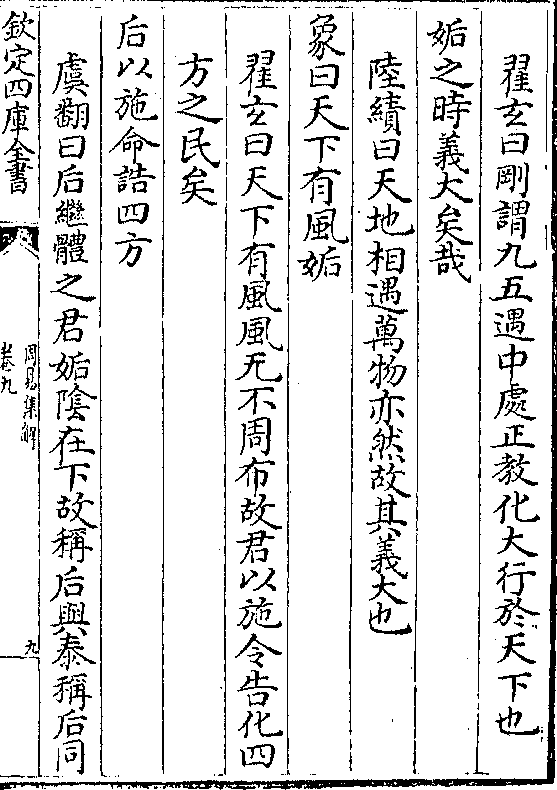 翟玄曰剛謂九五遇中處正教化大行於天下也
姤之時義大矣哉
陸績曰天地相遇萬物亦然故其義大也
象曰天下有風姤
翟玄曰天下有風風无不周布故君以施令告化四
方之民矣
后以施命誥四方
虞翻曰后繼體之君姤陰在下故稱后與泰稱后同
欽定四庫全書
周易集解
卷九
九